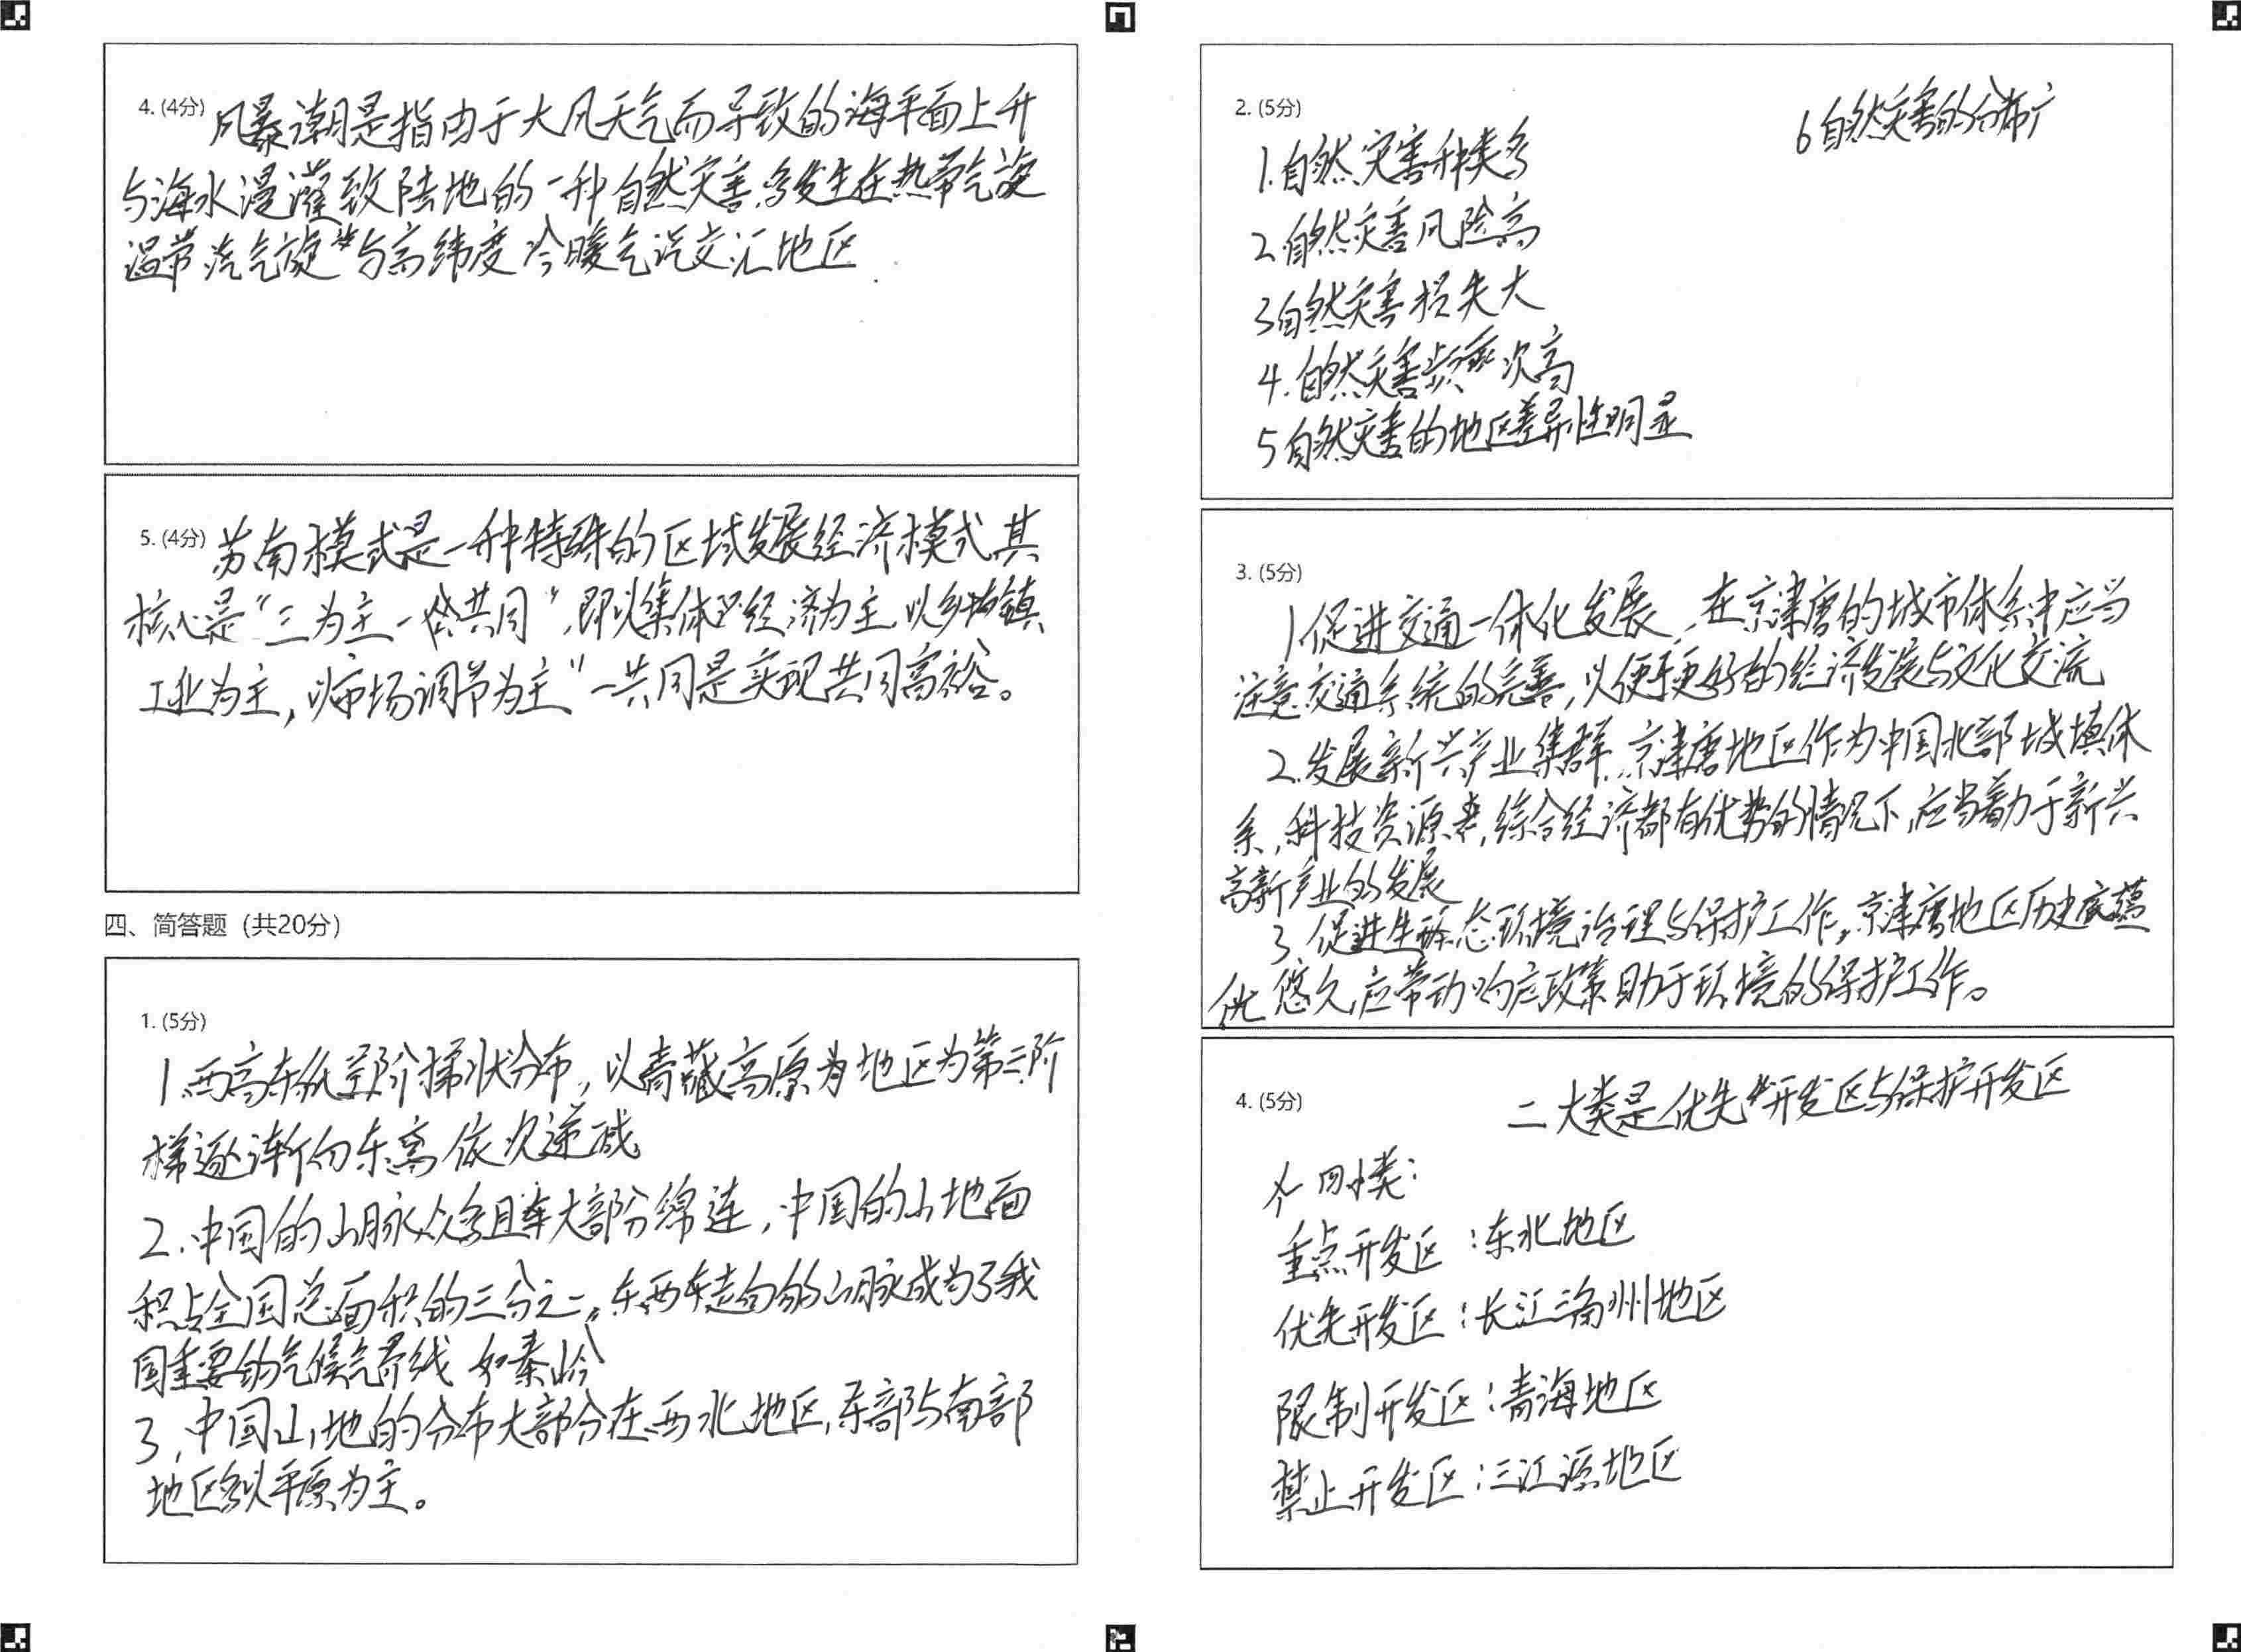 4. (4分) 风暴潮是指由于大风天气而导致的海平面上升
与海水漫灌致陆地的一种自然灾害,多发生在热带气旋
温带气旋与高纬度冷暖气流交汇地区
5. (4分) 苏南模式是一种特殊的区域发展经济模式其
核心是“三为主一共同”,即以集体经济为主,以乡镇
工业为主,以市场调节为主”一共同是实现共同富裕。
四、简答题 (共20分)
1. (5分)
1.西高东低呈阶梯状分布,以青藏高原为地区为第三阶
梯逐渐向东高依次递减
2.中国的山脉众多且大部分绵连,中国的山地面
积占全国总面积的三分之二,东西走向的山脉成为了我
国重要的气候界线 如秦岭
3,中国山地的分布大部分在西北地区,东部与南部
地区多以平原为主。
2. (5分)
1.自然灾害种类多
2.自然灾害风险高
3自然灾害损失大
4.自然灾害频次高
5自然灾害的地区差异性明显
6自然灾害的分布广
3. (5分)
1.促进交通一体化发展,在京津唐的城市体系中应当
注意交通系统的完善,以便于更好的经济发展与文化交流
2.发展新兴产业集群,京津唐地区作为中国北部城镇体
系,科技资源,综合经济都有优势的情况下,应当着力于新兴
高新产业的发展
3.促进生态环境治理与保护工作,京津唐地区历史底蕴
悠久,应带动响应政策助于环境的保护工作。
4. (5分)
二大类是优先开发区与保护开发区
四小类:
重点开发区:东北地区
优先开发区:长江三角州地区
限制开发区:青海地区
禁止开发区:三江源地区